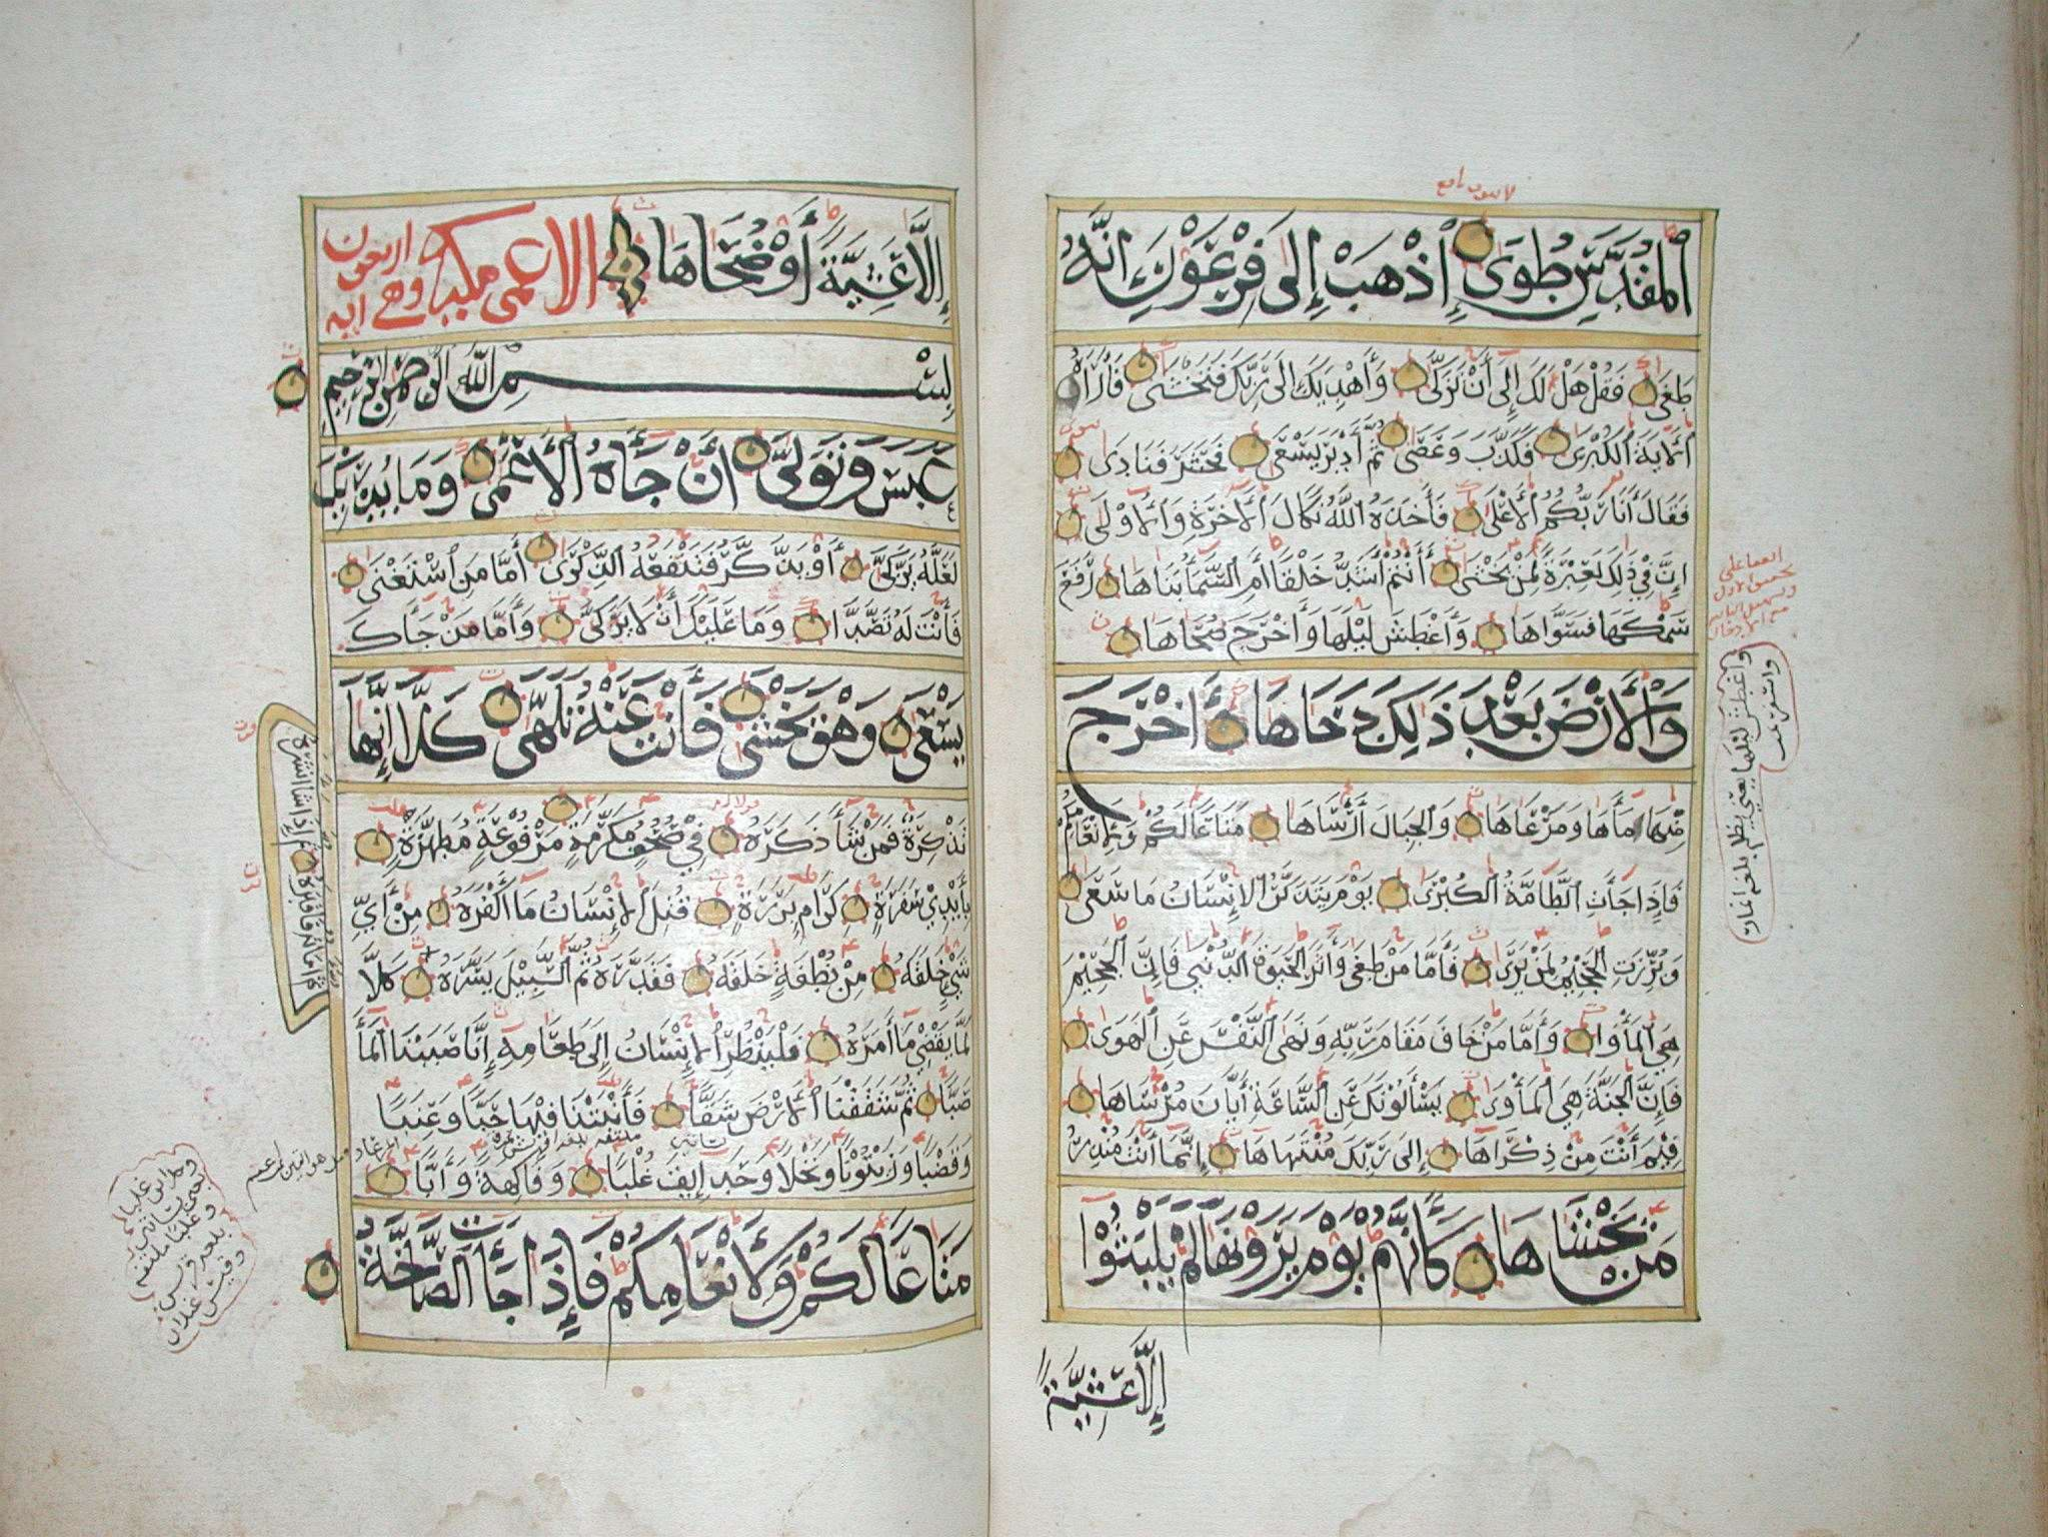 المُقَدَّسِ طُوَى إِذْهَبْ إِلَى فِرْعَوْنَ إِنَّهُ
طَغَى فَقُلْ هَلْ لَكَ إِلَى أَنْ تَزَكَّى وَأَهْدِيَكَ إِلَى رَبِّكَ فَتَخْشَى فَأَرَاهُ
الْآيَةَ الْكُبْرَى فَكَذَّبَ وَعَصَى ثُمَّ أَدْبَرَ يَسْعَى فَحَشَرَ فَنَادَى
فَقَالَ أَنَا رَبُّكُمُ الْأَعْلَى فَأَخَذَهُ اللَّهُ نَكَالَ الْآخِرَةِ وَالْأُولَى
إِنَّ فِي ذَلِكَ لَعِبْرَةً لِمَنْ يَخْشَى أَأَنْتُمْ أَشَدُّ خَلْقًا أَمِ السَّمَآءُ بَنَاهَا رَفَعَ
سَمْكَهَا فَسَوَّاهَا وَأَغْطَشَ لَيْلَهَا وَأَخْرَجَ ضُحَاهَا
وَالْأَرْضَ بَعْدَ ذَلِكَ دَحَاهَا أَخْرَجَ
مِنْهَا مَآءَهَا وَمَرْعَاهَا وَالْجِبَالَ أَرْسَاهَا مَتَاعًا لَكُمْ وَلِأَنْعَامِكُمْ
فَإِذَا جَآءَتِ الطَّامَّةُ الْكُبْرَى يَوْمَ يَتَذَكَّرُ الْإِنْسَانُ مَا سَعَى
وَبُرِّزَتِ الْجَحِيمُ لِمَنْ يَرَى فَأَمَّا مَنْ طَغَى وَآثَرَ الْحَيَوةَ الدُّنْيَا فَإِنَّ الْجَحِيمَ
هِيَ الْمَأْوَى وَأَمَّا مَنْ خَافَ مَقَامَ رَبِّهِ وَنَهَى النَّفْسَ عَنِ الْهَوَى
فَإِنَّ الْجَنَّةَ هِيَ الْمَأْوَى يَسْأَلُونَكَ عَنِ السَّاعَةِ أَيَّانَ مُرْسَاهَا
فِيمَ أَنْتَ مِنْ ذِكْرَاهَا إِلَى رَبِّكَ مُنْتَهَاهَا إِنَّمَا أَنْتَ مُنْذِرُ
مَنْ يَخْشَاهَا كَأَنَّهُمْ يَوْمَ يَرَوْنَهَا لَمْ يَلْبَثُوا
إِلَّا عَشِيَّةً
إِلَّا عَشِيَّةً أَوْ ضُحَاهَا الاعمى مكية وهي اربعون ايه
بِسْمِ اللَّهِ الرَّحْمَنِ الرَّحِيمِ
عَبَسَ وَتَوَلَّى أَنْ جَآءَهُ الْأَعْمَى وَمَا يُدْرِيكَ
لَعَلَّهُ يَزَّكَّى أَوْ يَذَّكَّرُ فَتَنْفَعُهُ الذِّكْرَى أَمَّا مَنِ اسْتَغْنَى
فَأَنْتَ لَهُ تَصَّدَّى وَمَا عَلَيْكَ أَنْ لَا يَزَّكَّى وَأَمَّا مَنْ جَآءَكَ
يَسْعَى وَهْوَ يَخْشَى فَأَنْتَ عَنْهُ تَلَهَّى كَلَّا إِنَّهَا
تَذْكِرَةٌ فَمَنْ شَآءَ ذَكَرَهُ فِي صُحُفٍ مُكَرَّمَةٍ مَرْفُوعَةٍ مُطَهَّرَةٍ
بِأَيْدِي سَفَرَةٍ كِرَامٍ بَرَرَةٍ قُتِلَ الْإِنْسَانُ مَا أَكْفَرَهُ مِنْ أَيِّ
شَيْءٍ خَلَقَهُ مِنْ نُطْفَةٍ خَلَقَهُ فَقَدَّرَهُ ثُمَّ السَّبِيلَ يَسَّرَهُ كَلَّا
ثم اماته فاقبره ثم إذا شا انشره
لَمَّا يَقْضِ مَا أَمَرَهُ فَلْيَنْظُرِ الْإِنْسَانُ إِلَى طَعَامِهِ إِنَّا صَبَبْنَا الْمَآءَ
صَبًّا ثُمَّ شَقَقْنَا الْأَرْضَ شَقًّا فَأَنْبَتْنَا فِيهَا حَبًّا وَعِنَبًا
وَقَضْبًا وَزَيْتُونًا وَنَخْلًا وَحَدَائِقَ غُلْبًا وَفَاكِهَةً وَأَبًّا
مَتَاعًا لَكُمْ وَلِأَنْعَامِكُمْ فَإِذَا جَآءَتِ الصَّآخَّةُ